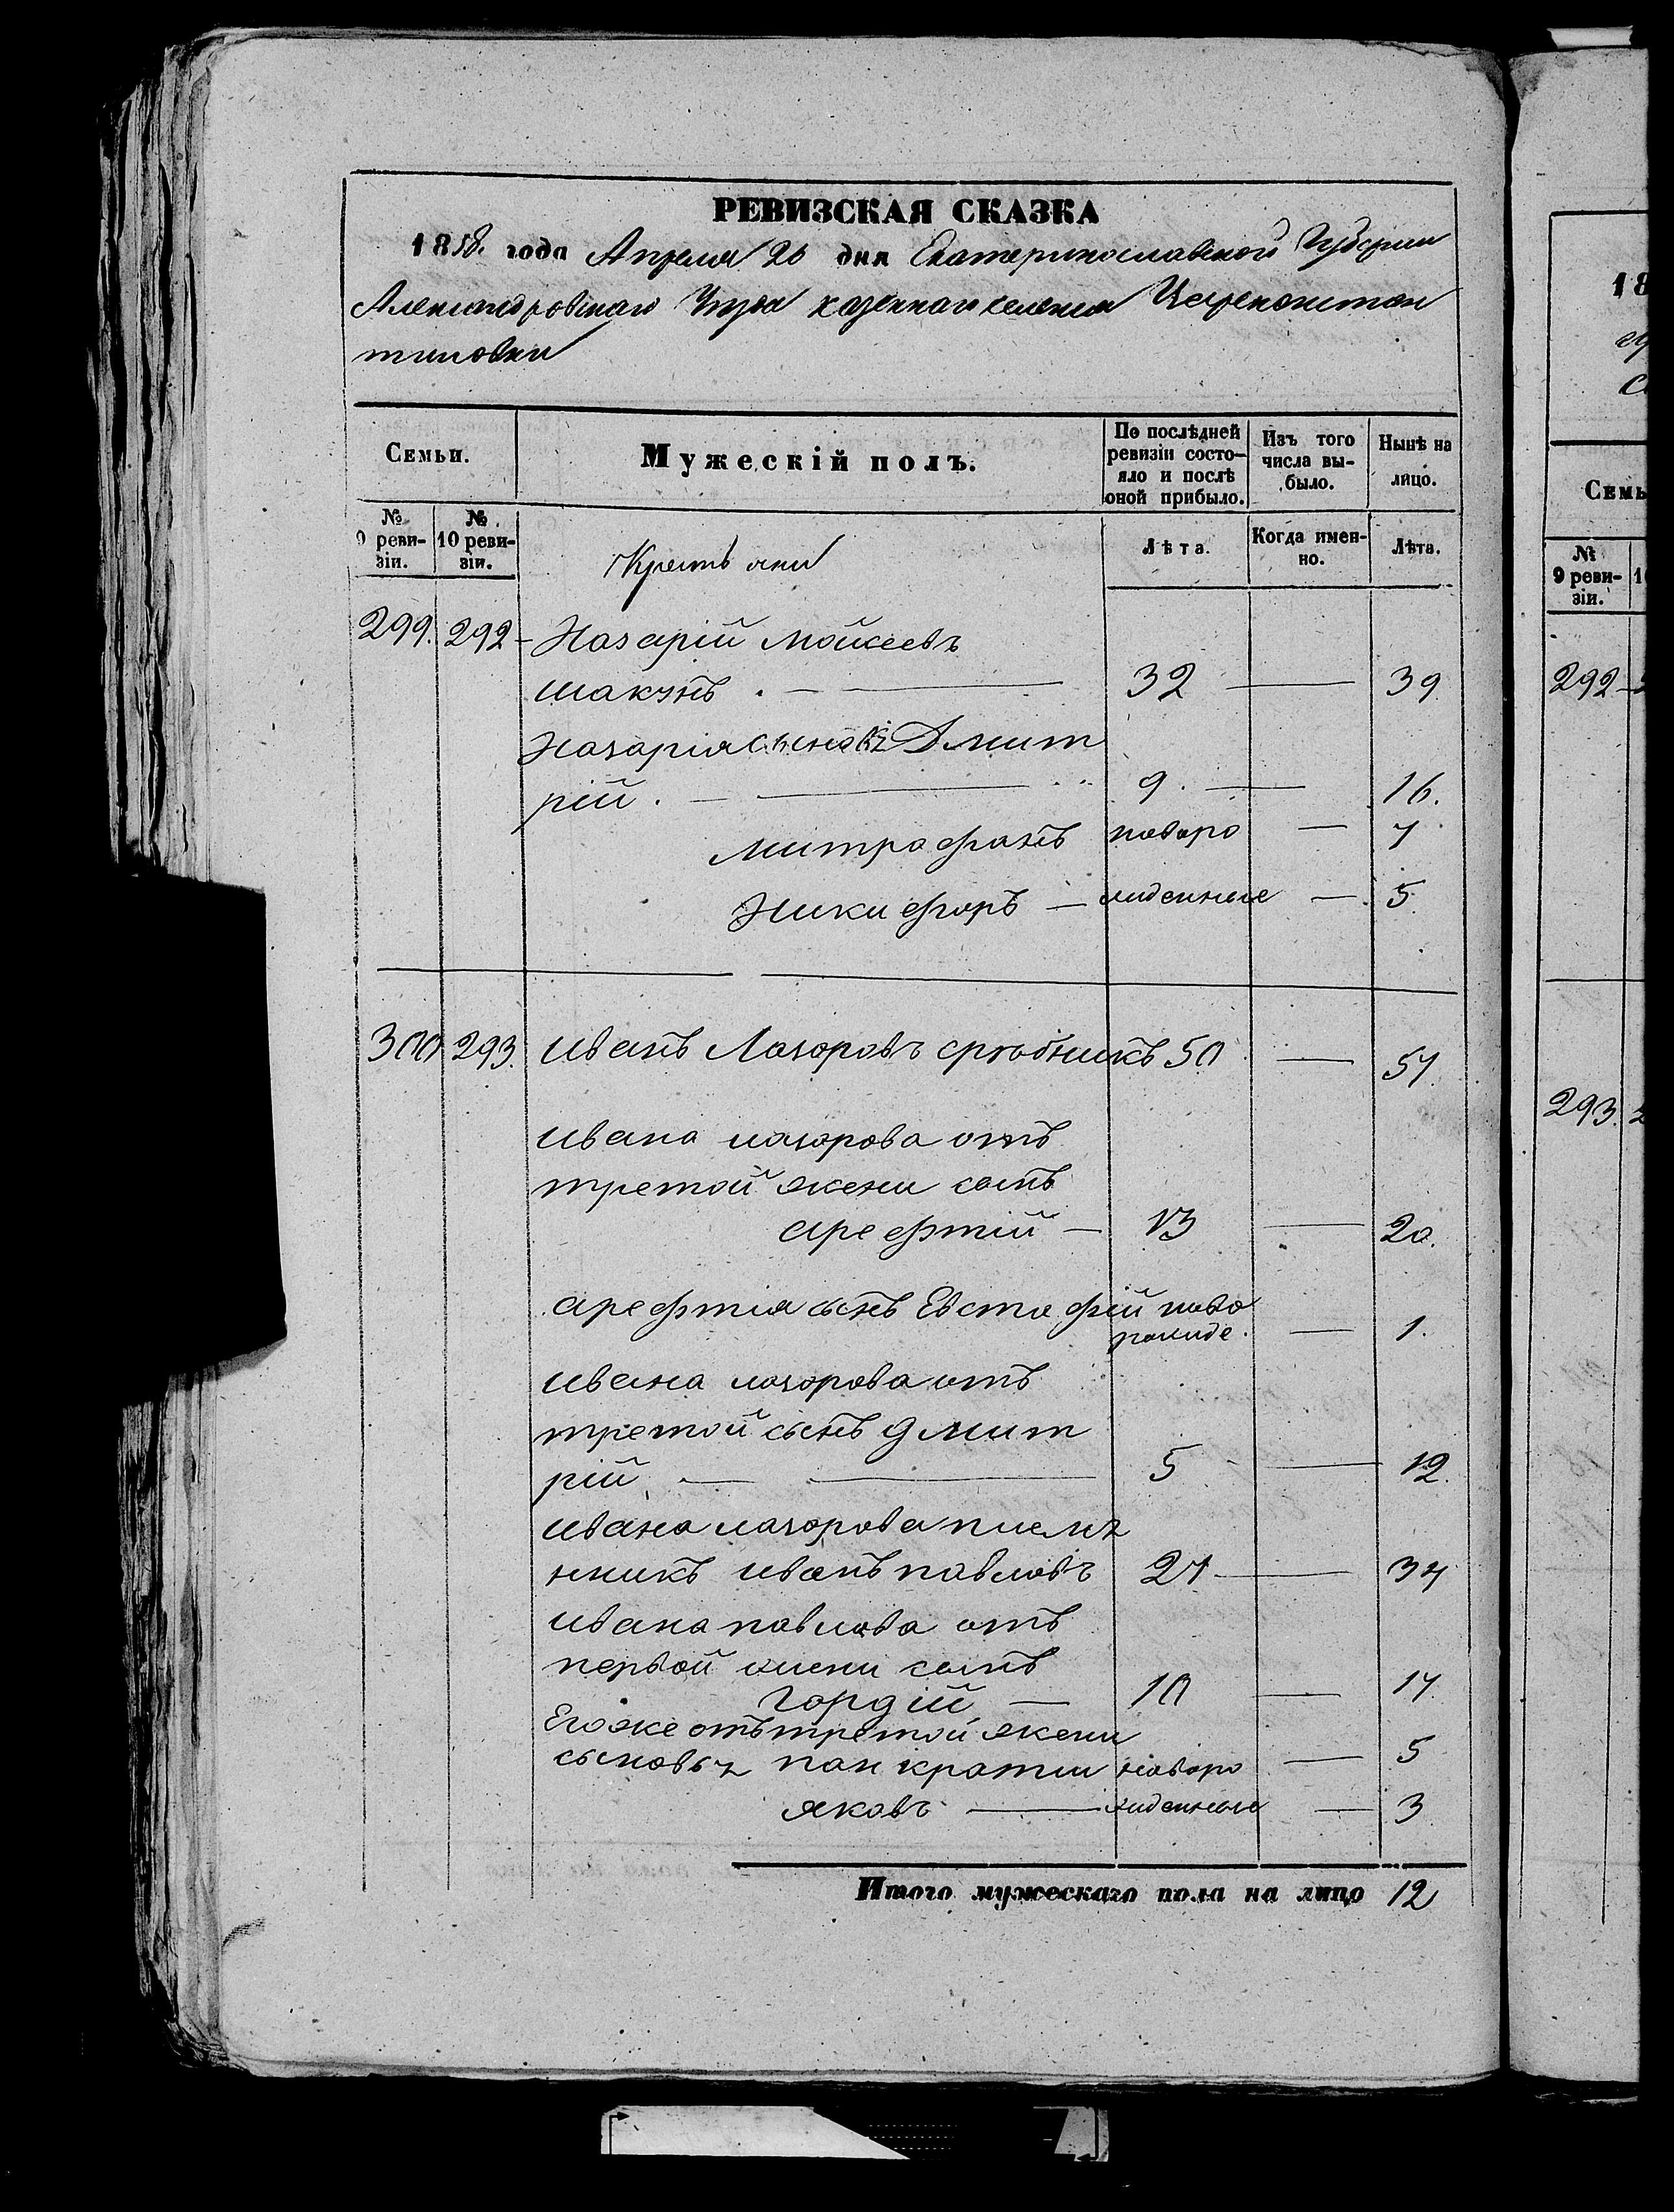 РЕВИЗСКАЯ СКАЗКА
1858. года Апреля 26 дня Екатеринославской Губернии
Александровскаго Уезда казеннаго селения Цареконстан
тиновки
Семьи.
Мужескій полъ.
По послѣдней ревизіи состо-
яло и послѣ
оной прибыло.
Изъ того
числа вы-
было.
Нынѣ на
лицо.
№
9 реви-
зіи.
№
10 реви-
зіи.
Крестьяни
Лѣта.
Когда имен-
но.
Лѣта.
299. 292 - Назарій Мойсеевъ
шакунъ . — 32 — 39
Назарія сыновѣ Дмит
рій . — 9. — 16.
Митрофанъ новоро — 7
Никифоръ — жденные — 5
300 293. Иванъ Лазоровъ срѣбникъ 50 — 57
Ивана лазорова отъ
третой жени сынъ
арефтій — 13 — 20.
арефтія сынъ Евстафій ново
рожде. — 1.
Ивана лазорова отъ
третой сынъ дмит
рій — 5 — 12.
Ивана лазорова племѣ
нникъ иванъ павловъ 27 — 34
Ивана павлова отъ
первой жени сынъ
Гордій — 10 — 17.
Егоже отъ третой жени
сыновѣ панкратии новоро — 5
яковъ — жденные — 3
Итого мужескаго пола на лицо 12
18
Семь
№
9 реви-
зіи.
292
293.